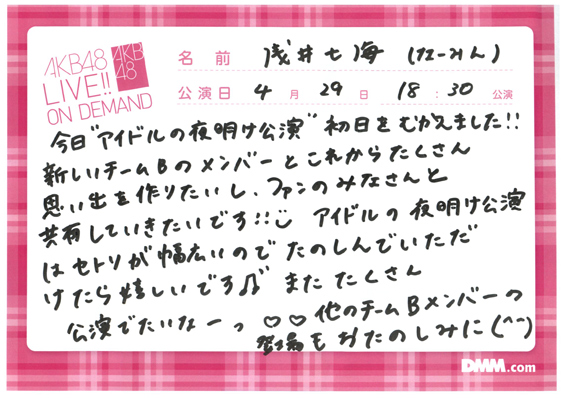 AKB48
LIVE!!
ON DEMAND
AKB
48
名前 浅井七海 (なーみん)
公演日 4月29日 18:30 公演
今日"アイドルの夜明け公演"初日をむかえました!!
新しいチームBのメンバーとこれからたくさん
思い出を作りたいし、ファンのみなさんと
共有していきたいです!! アイドルの夜明け公演
はセトリが幅広いのでたのしんでいただ
けたら嬉しいです♫ また たくさん
公演でたいなーっ ♡♡ 他のチームBメンバーの
登場もおたのしみに(^^)
DMM.com